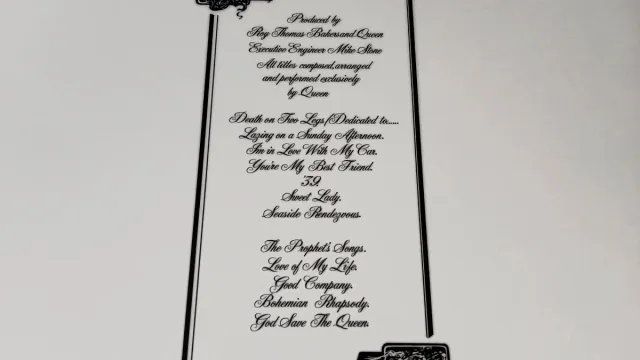 Produced by
Roy Thomas Baker and Queen
Executive Engineer Mike Stone
All titles composed, arranged
and performed exclusively
by Queen
Death on Two Legs (Dedicated to.....
Lazing on a Sunday Afternoon.
I'm in Love With My Car.
You're My Best Friend.
'39.
Sweet Lady.
Seaside Rendezvous.
The Prophet's Songs.
Love of My Life.
Good Company.
Bohemian Rhapsody.
God Save The Queen.